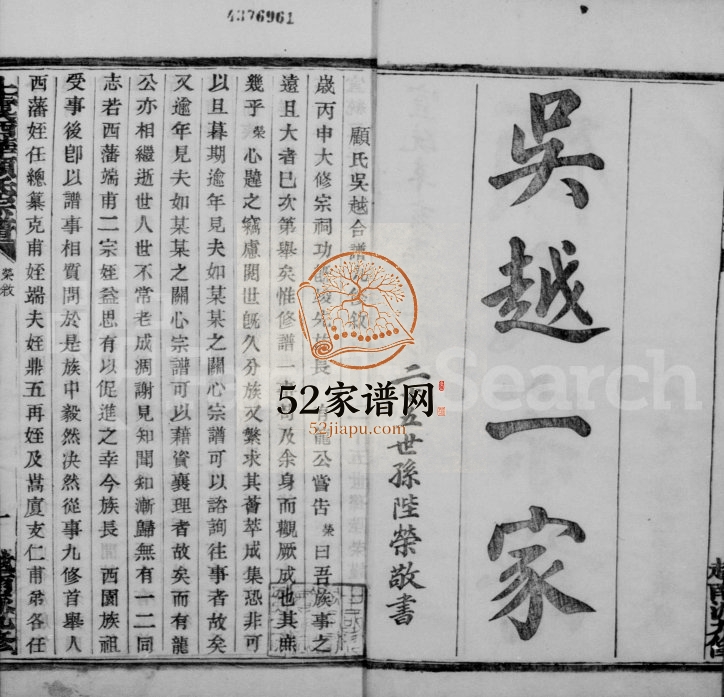 4376961
吳越一家
二 五世孫陛榮敬書
顧氏吳越合譜
歲丙申大修宗祠功 族長 龍公嘗告榮曰吾族事之
遠且大者已次第舉矣惟修譜一 及余身而觀厥成也其庶
幾乎榮心韙之竊慮閱世旣久分族又繁求其薈萃成集恐非可
以旦暮期逾年見夫如某某之關心宗譜可以諮詢往事者故矣
又逾年見夫如某某之關心宗譜可以藉資襄理者故矣而有龍
公亦相繼逝世人世不常老成凋謝見知聞知漸歸無有一二同
志若西藩端甫二宗姪益思有以促進之幸今族長 西園族祖
受事後卽以譜事相質問於是族中毅然決然從事九修首舉人
西藩姪任總纂克甫姪端夫姪鼎五再姪及嵩廈支仁甫弟各任
榮敘
52家谱网
52jiapu.com
Search